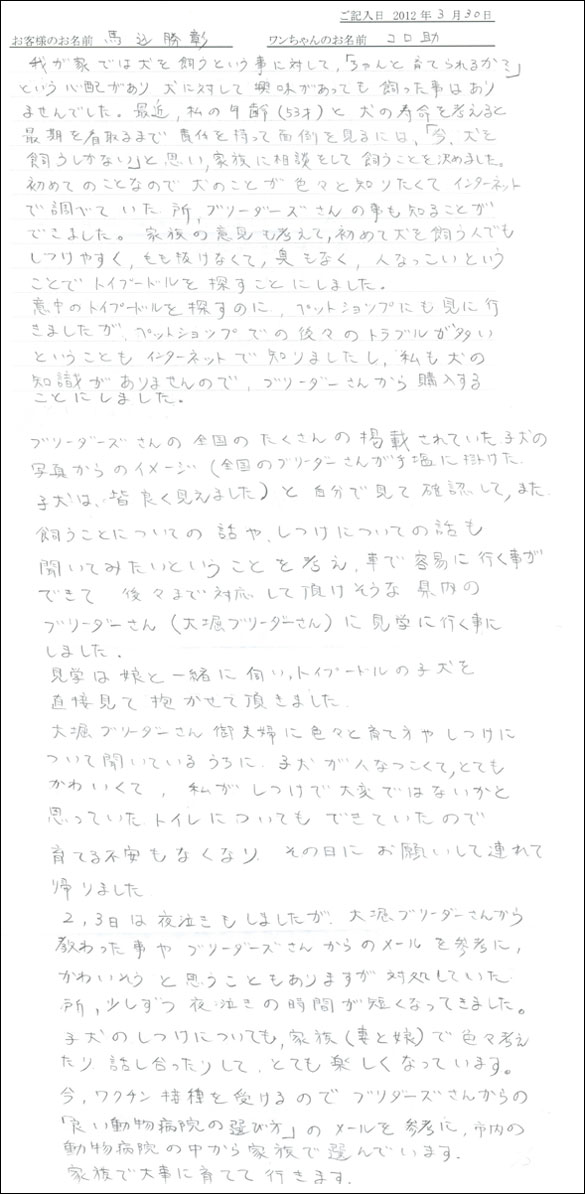 ご記入日 2012年3月30日
お客様のお名前 馬込勝彰 ワンちゃんのお名前 コロ助
我が家では犬を飼うという事に対して,「ちゃんと育てられるか?」
という心配があり 犬に対して興味があっても飼った事はあり
ませんでした。最近,私の年齢(53才)と犬の寿命を考えると
最期を看取るまで責任を持って面倒を見るには,「今,犬を
飼うしかない」と思い,家族に相談をして飼うことを決めました。
初めてのことなので犬のことが色々と知りたくてインターネット
で調べていた所,ブリーダーズさんの事も知ることが
できました。家族の意見も考えて,初めて犬を飼う人でも
しつけやすく,毛も抜けなくて,臭もなく,人なつっこいという
ことでトイプードルを探すことにしました。
意中のトイプードルを探すのに,ペットショップにも見に行
きましたが,ペットショップでの後々のトラブルが多い
ということもインターネットで知りましたし,私も犬の
知識がありませんので,ブリーダーさんから購入する
ことにしました。
ブリーダーズさんの全国のたくさんの掲載されていた子犬の
写真からのイメージ(全国のブリーダーさんが手塩に掛けた
子犬は,皆良く見えました)と自分で見て確認して,また
飼うことについての話や,しつけについての話も
聞いてみたいということを考え,車で容易に行く事が
できて 後々まで対応して頂けそうな県内の
ブリーダーさん(大堀ブリーダーさん)に見学に行く事に
しました.
見学は娘と一緒に伺い,トイプードルの子犬を
直接見て抱かせて頂きました.
大堀ブリーダーさん御夫婦に色々と育て方やしつけに
ついて聞いているうちに,子犬が人なつこくて,とても
かわいくて,私がしつけで大変ではないかと
思っていたトイレについてもできていたので
育てる不安もなくなり,その日にお願いして連れて
帰りました.
2,3日は夜泣きもしましたが,大堀ブリーダーさんから
教わった事やブリーダーズさんからのメールを参考に,
かわいそうと思うこともありますが対処していた
所,少しずつ夜泣きの時間が短くなってきました。
子犬のしつけについても,家族(妻と娘)で色々考え
たり話し合ったりして,とても楽しくなっています。
今,ワクチン接種を受けるのでブリダーズさんからの
「良い動物病院の選び方」のメールを参考に,市内の
動物病院の中から家族で選んでいます.
家族で大事に育てて行きます.